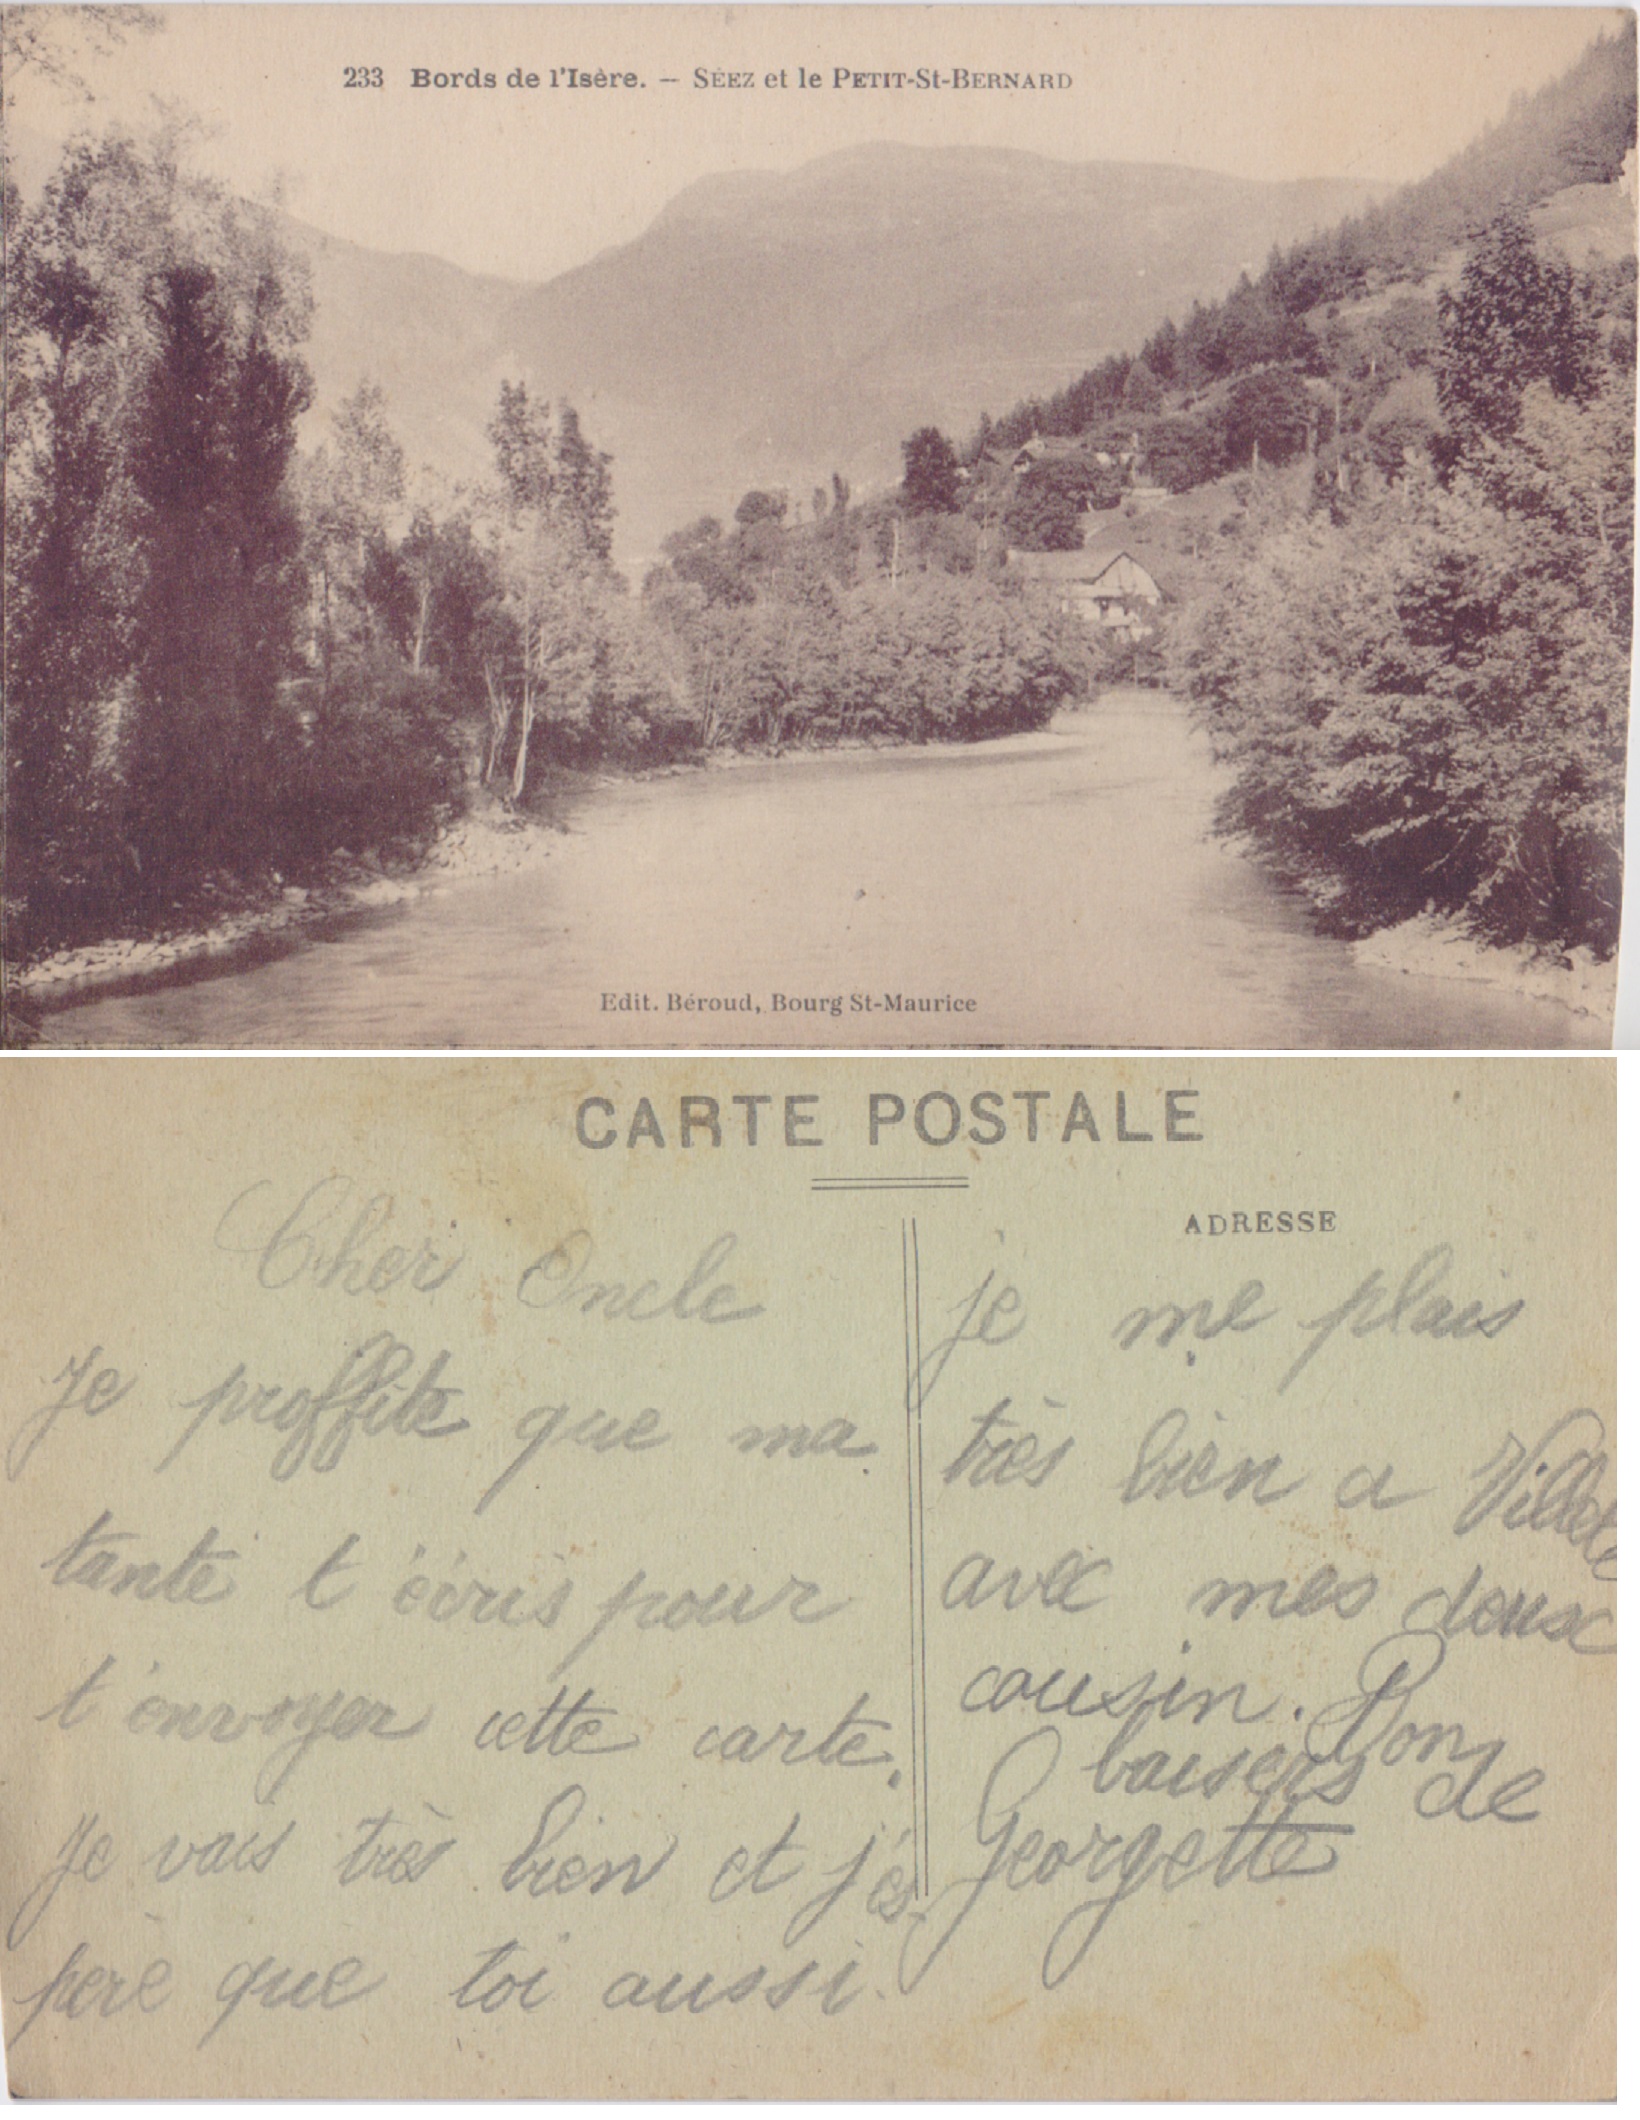 233 Bords de l'Isère. — SÉEZ et le PETIT-St-BERNARD
Edit. Béroud, Bourg St-Maurice
CARTE POSTALE
Cher Oncle
Je proffite que ma
tante t'écris pour
t'envoyer cette carte.
Je vais très bien et j'es-
père que toi aussi.
ADRESSE
je me plais
très bien a
avec mes deux
cousin. Bon
baisers de
Georgette